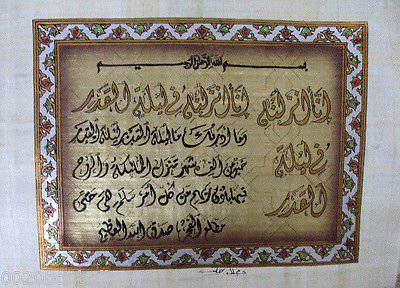 بسم الله الرحمن الرحيم
إنا أنزلناه
في ليلة
القدر
إنا أنزلناه في ليلة القدر
وما أدراك ما ليلة القدر ليلة القدر
خير من ألف شهر تنزل الملائكة والروح
فيها بإذن ربهم من كل أمر سلام هي حتى
مطلع الفجر صدق الله العظيم